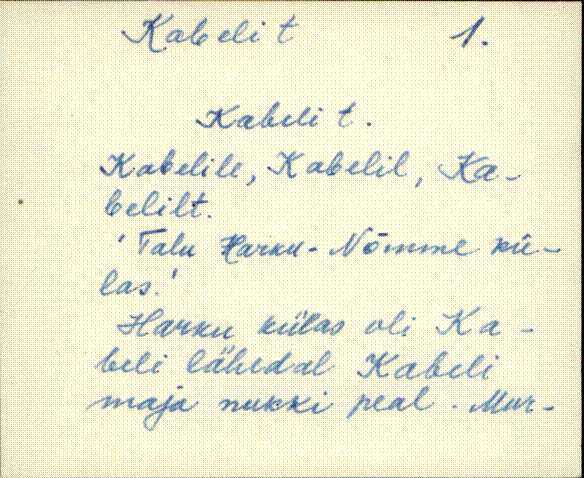 Kabeli t 1.
Kabeli t.
Kabelile, Kabelil, Ka-
belilt.
'Talu Harku-Nõmme kü-
las.'
Harku külas oli Ka-
beli lähedal Kabeli
maja nukki peal. Mur-